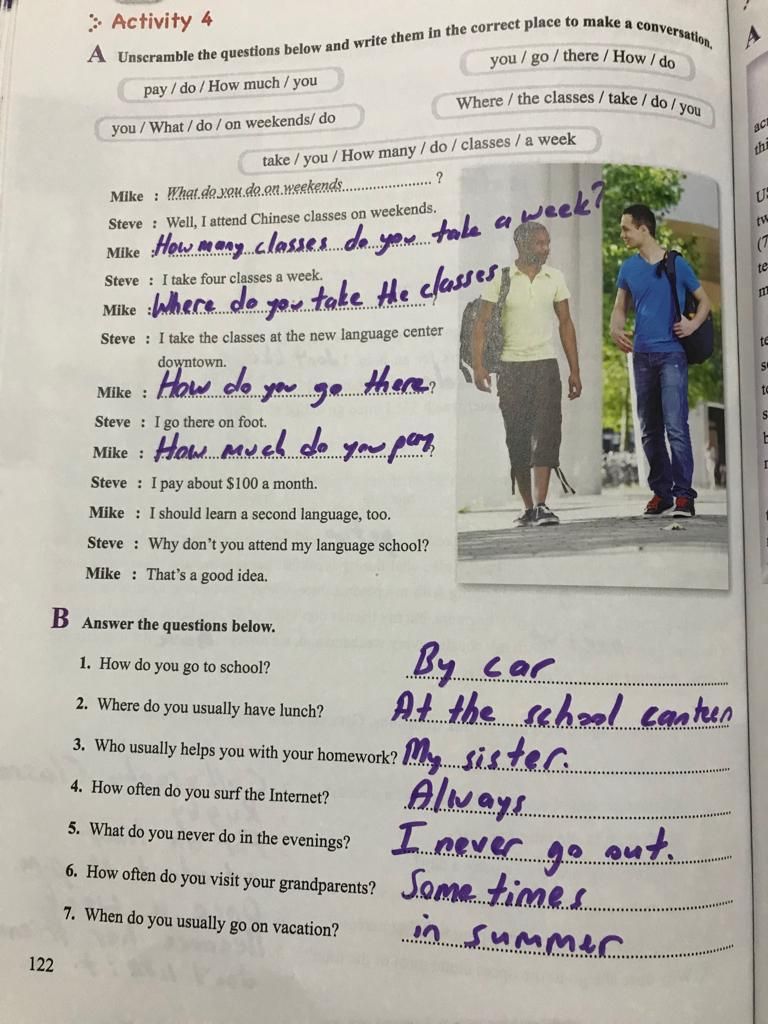 Activity 4
A Unscramble the questions below and write them in the correct place to make a conversation.
pay / do / How much / you
you / go / there / How / do
you / What / do / on weekends/ do
Where / the classes / take / do / you
take / you / How many / do / classes / a week
Mike : What do you do on weekends ?
Steve : Well, I attend Chinese classes on weekends.
Mike : How many classes do you take a week?
Steve : I take four classes a week.
Mike : Where do you take the classes
Steve : I take the classes at the new language center
downtown.
Mike : How do you go there ?
Steve : I go there on foot.
Mike : How much do you pay ?
Steve : I pay about $100 a month.
Mike : I should learn a second language, too.
Steve : Why don't you attend my language school?
Mike : That's a good idea.
B Answer the questions below.
1. How do you go to school? By car
2. Where do you usually have lunch? At the school canteen
3. Who usually helps you with your homework? My sister.
4. How often do you surf the Internet? Always
5. What do you never do in the evenings? I never go out.
6. How often do you visit your grandparents? Sometimes
7. When do you usually go on vacation? in summer
122
A